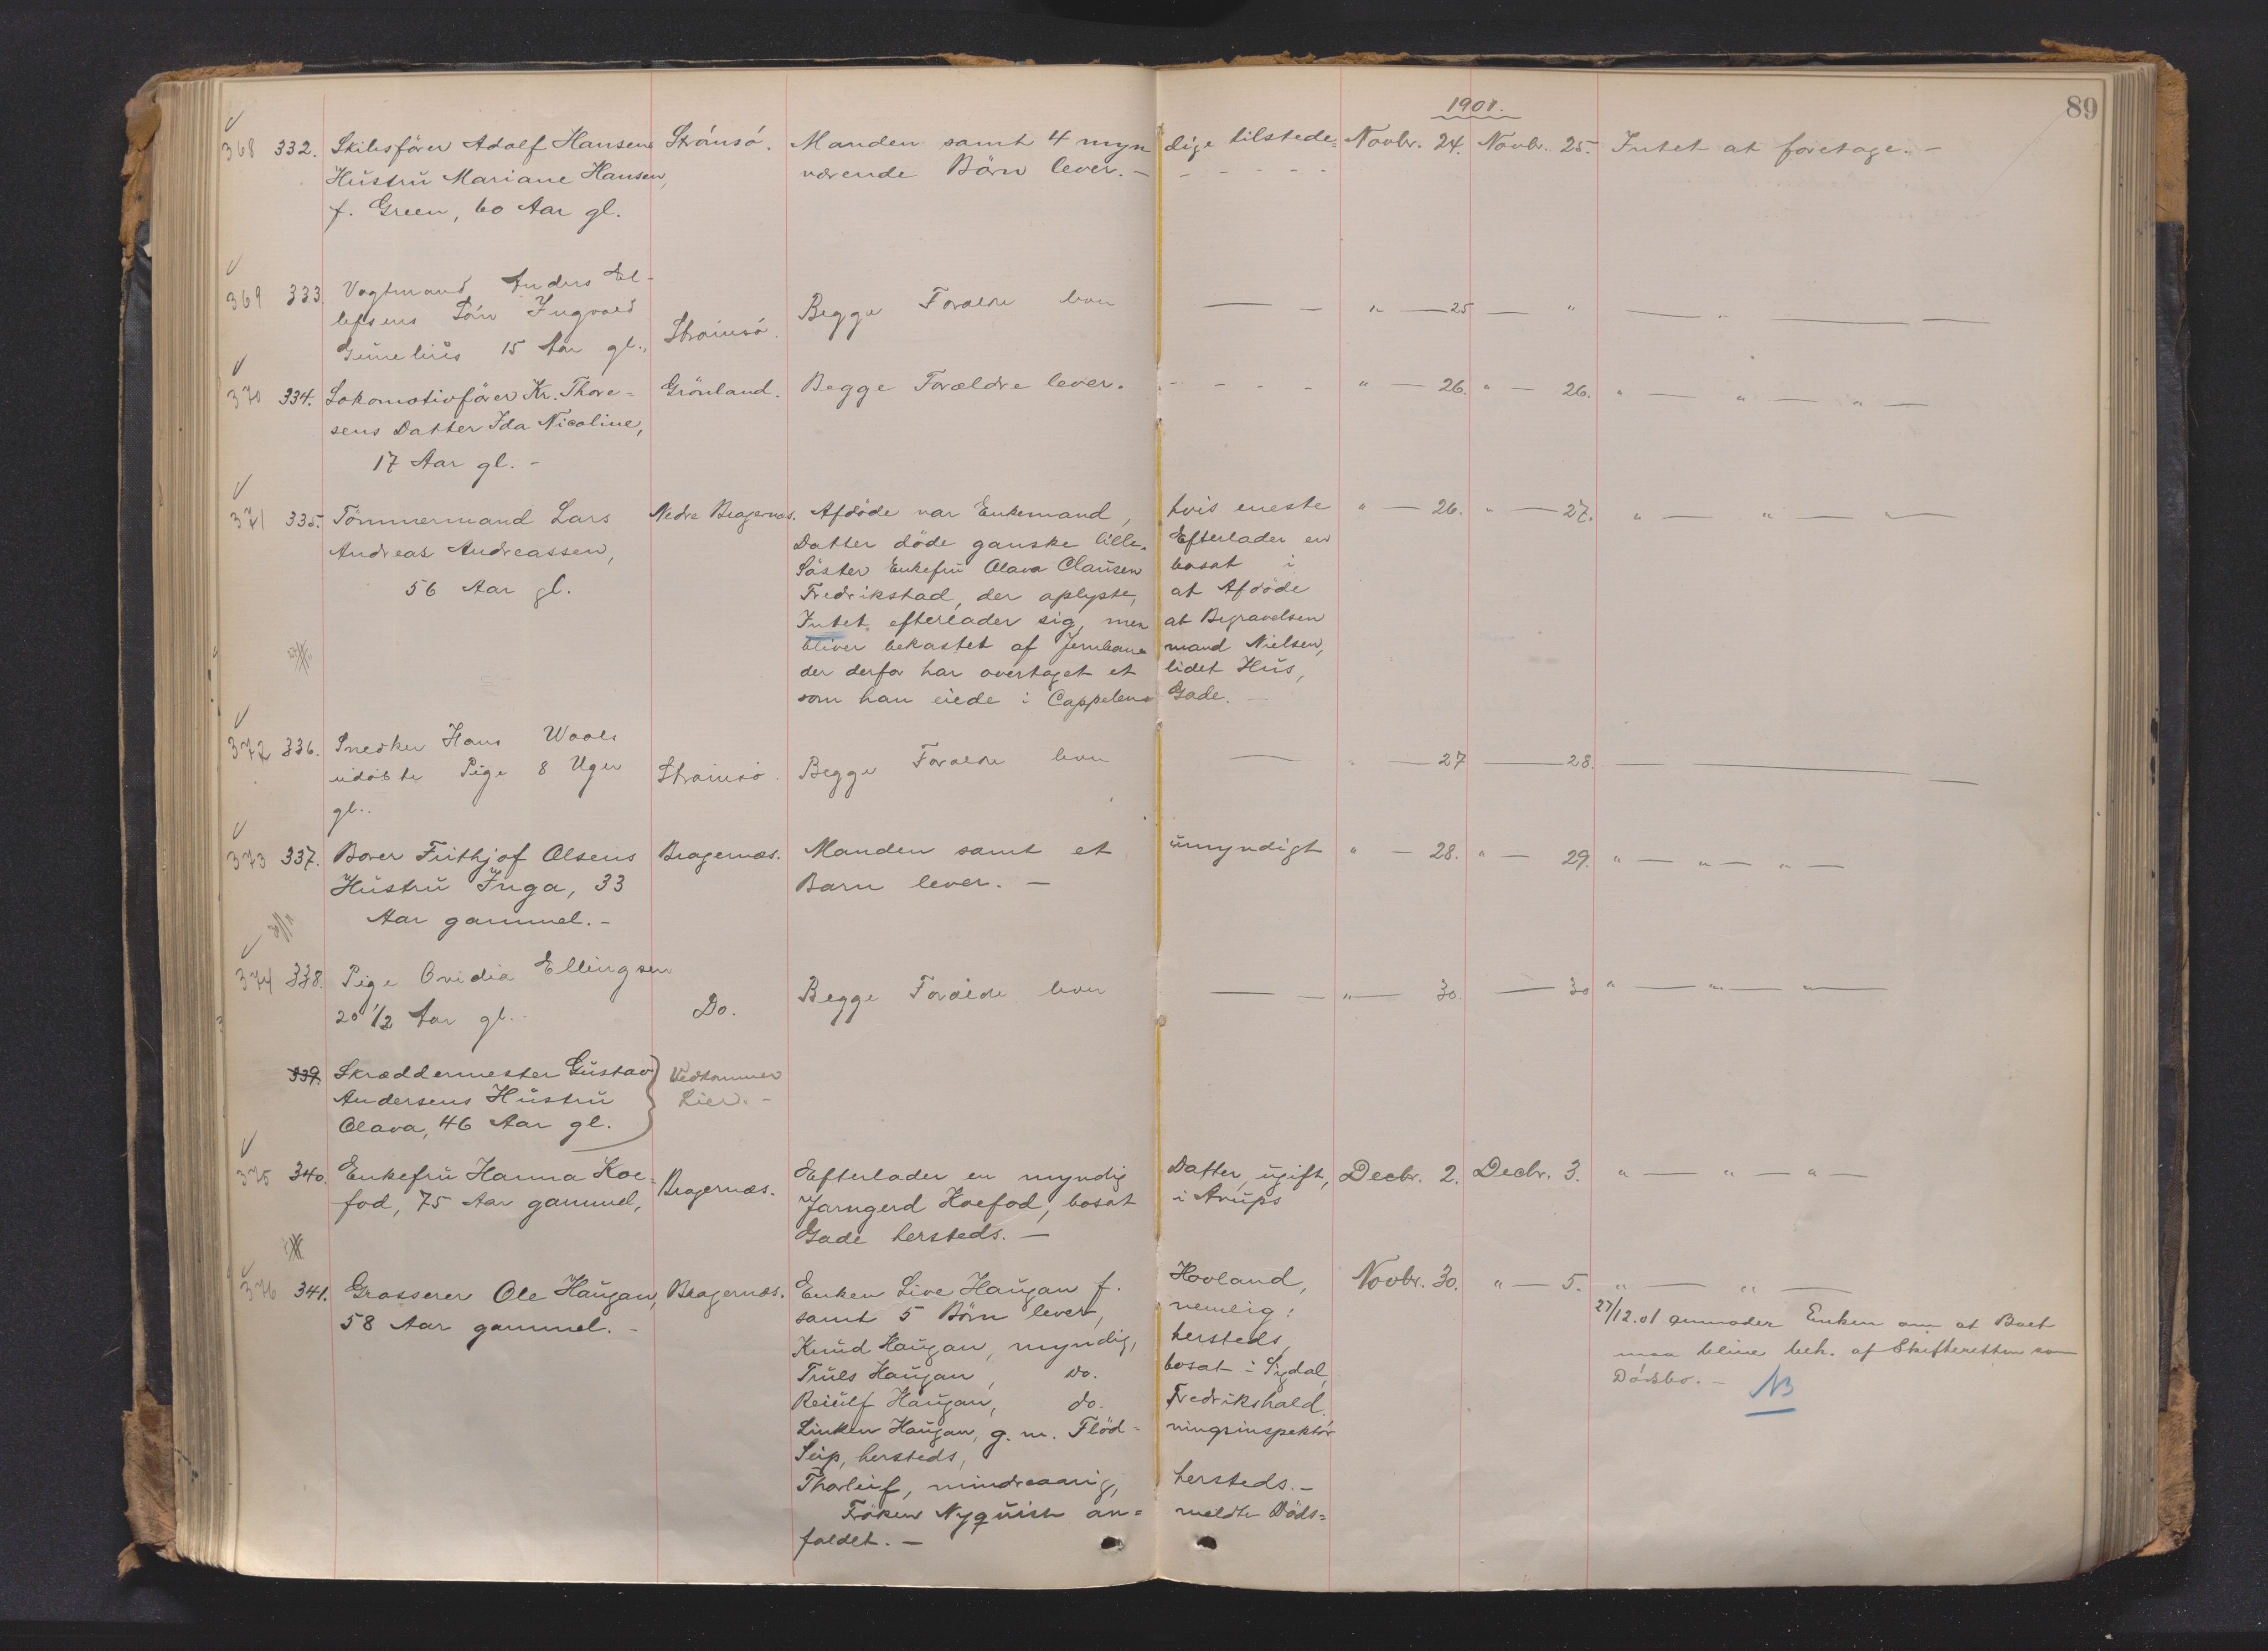 1901.
89
368 332. Skibsfører Adolf Hansens Strömsö. Manden samt 4 myn dige tilstede= Novbr. 24. Novbr. 25. Intet at foretage. -
Hustru Mariane Hansen, værende Börn lever. - - - - - -
f. Green, 60 Aar gl.
369 333. Vagtmand Anders El-
lefsens Sön Ingvald Strömsö. Begge Forældre lever — - " — 25 — " — " — —
15 Aar gl.,
370 334. Lokomotivförer Kr. Thore= Grönland. Begge Forældre lever. - - - - " — 26. " — 26. " — " — " —
sens Datter Ida Nicoline,
17 Aar gl. -
371 335. Tömmermand Lars Nedre Bragernæs. Afdöde var Enkemand, hvis eneste " — 26. " — 27. " — " — " —
Andreas Andreassen, Datter döde ganske lille. Efterlader en
56 Aar gl. Söster Enkefru Olava Clausen bosat i
Fredrikstad, der oplyste, at Afdöde
Intet efterlader sig, men at Begravelsen
bliver bekostet af Jernbane mand Nielsen,
der derfor har overtaget et lidet Hus,
som han eiede i Cappelens Gade. -
372 336. Snedker Hans Waals
udöbte Pige 8 Uger Strömsö. Begge Forældre lever — " — 27 — 28. — — —
gl..
373 337. Borer Frithjof Olsens Bragernæs. Manden samt et umyndigt " — 28. " — 29. " — " — " —
Hustru Inga, 33 Barn lever. —
Aar gammel. -
374 338. Pige Ovidia Ellingsen
20 1/2 Aar gl. Do. Begge Forældre lever — - " — 30. — 30 " — " — " —
339. Skræddermester Gustav Vedkommer
Andersens Hustru Lier. -
Olava, 46 Aar gl.
375 340. Enkefru Hanna Koe= Bragernæs. Efterlader en myndig Datter, ugift, Decbr. 2. Decbr. 3. " — " — " —
fod, 75 Aar gammel, Jarngerd Koefod, bosat i Arups
Gade hersteds. —
376 341. Grosserer Ole Haugan, Bragernæs. Enken Live Haugan f. Hovland, Novbr. 30. " — 5. " — " —
58 Aar gammel. - samt 5 Börn lever, nemlig: 27/12.01 anmoder Enken om at Boet
Knud Haugan, myndig, hersteds, maa blive beh. af Skifteretten som
Truls Haugan, do. bosat i Sigdal, Dödsbo. - NB
Reiulf Haugan, do. Fredrikshald.
Linken Haugan, g. m. Flöd= ningsinspektör
Seip, hersteds,
Thorleif, mindreaarig, hersteds. -
Fröken Nyquist an= meldte Döds=
faldet. —